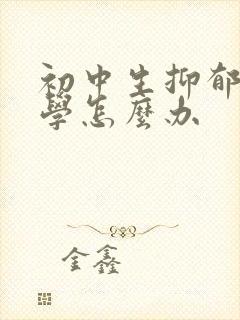 初中生抑郁
學怎麼办
金鑫